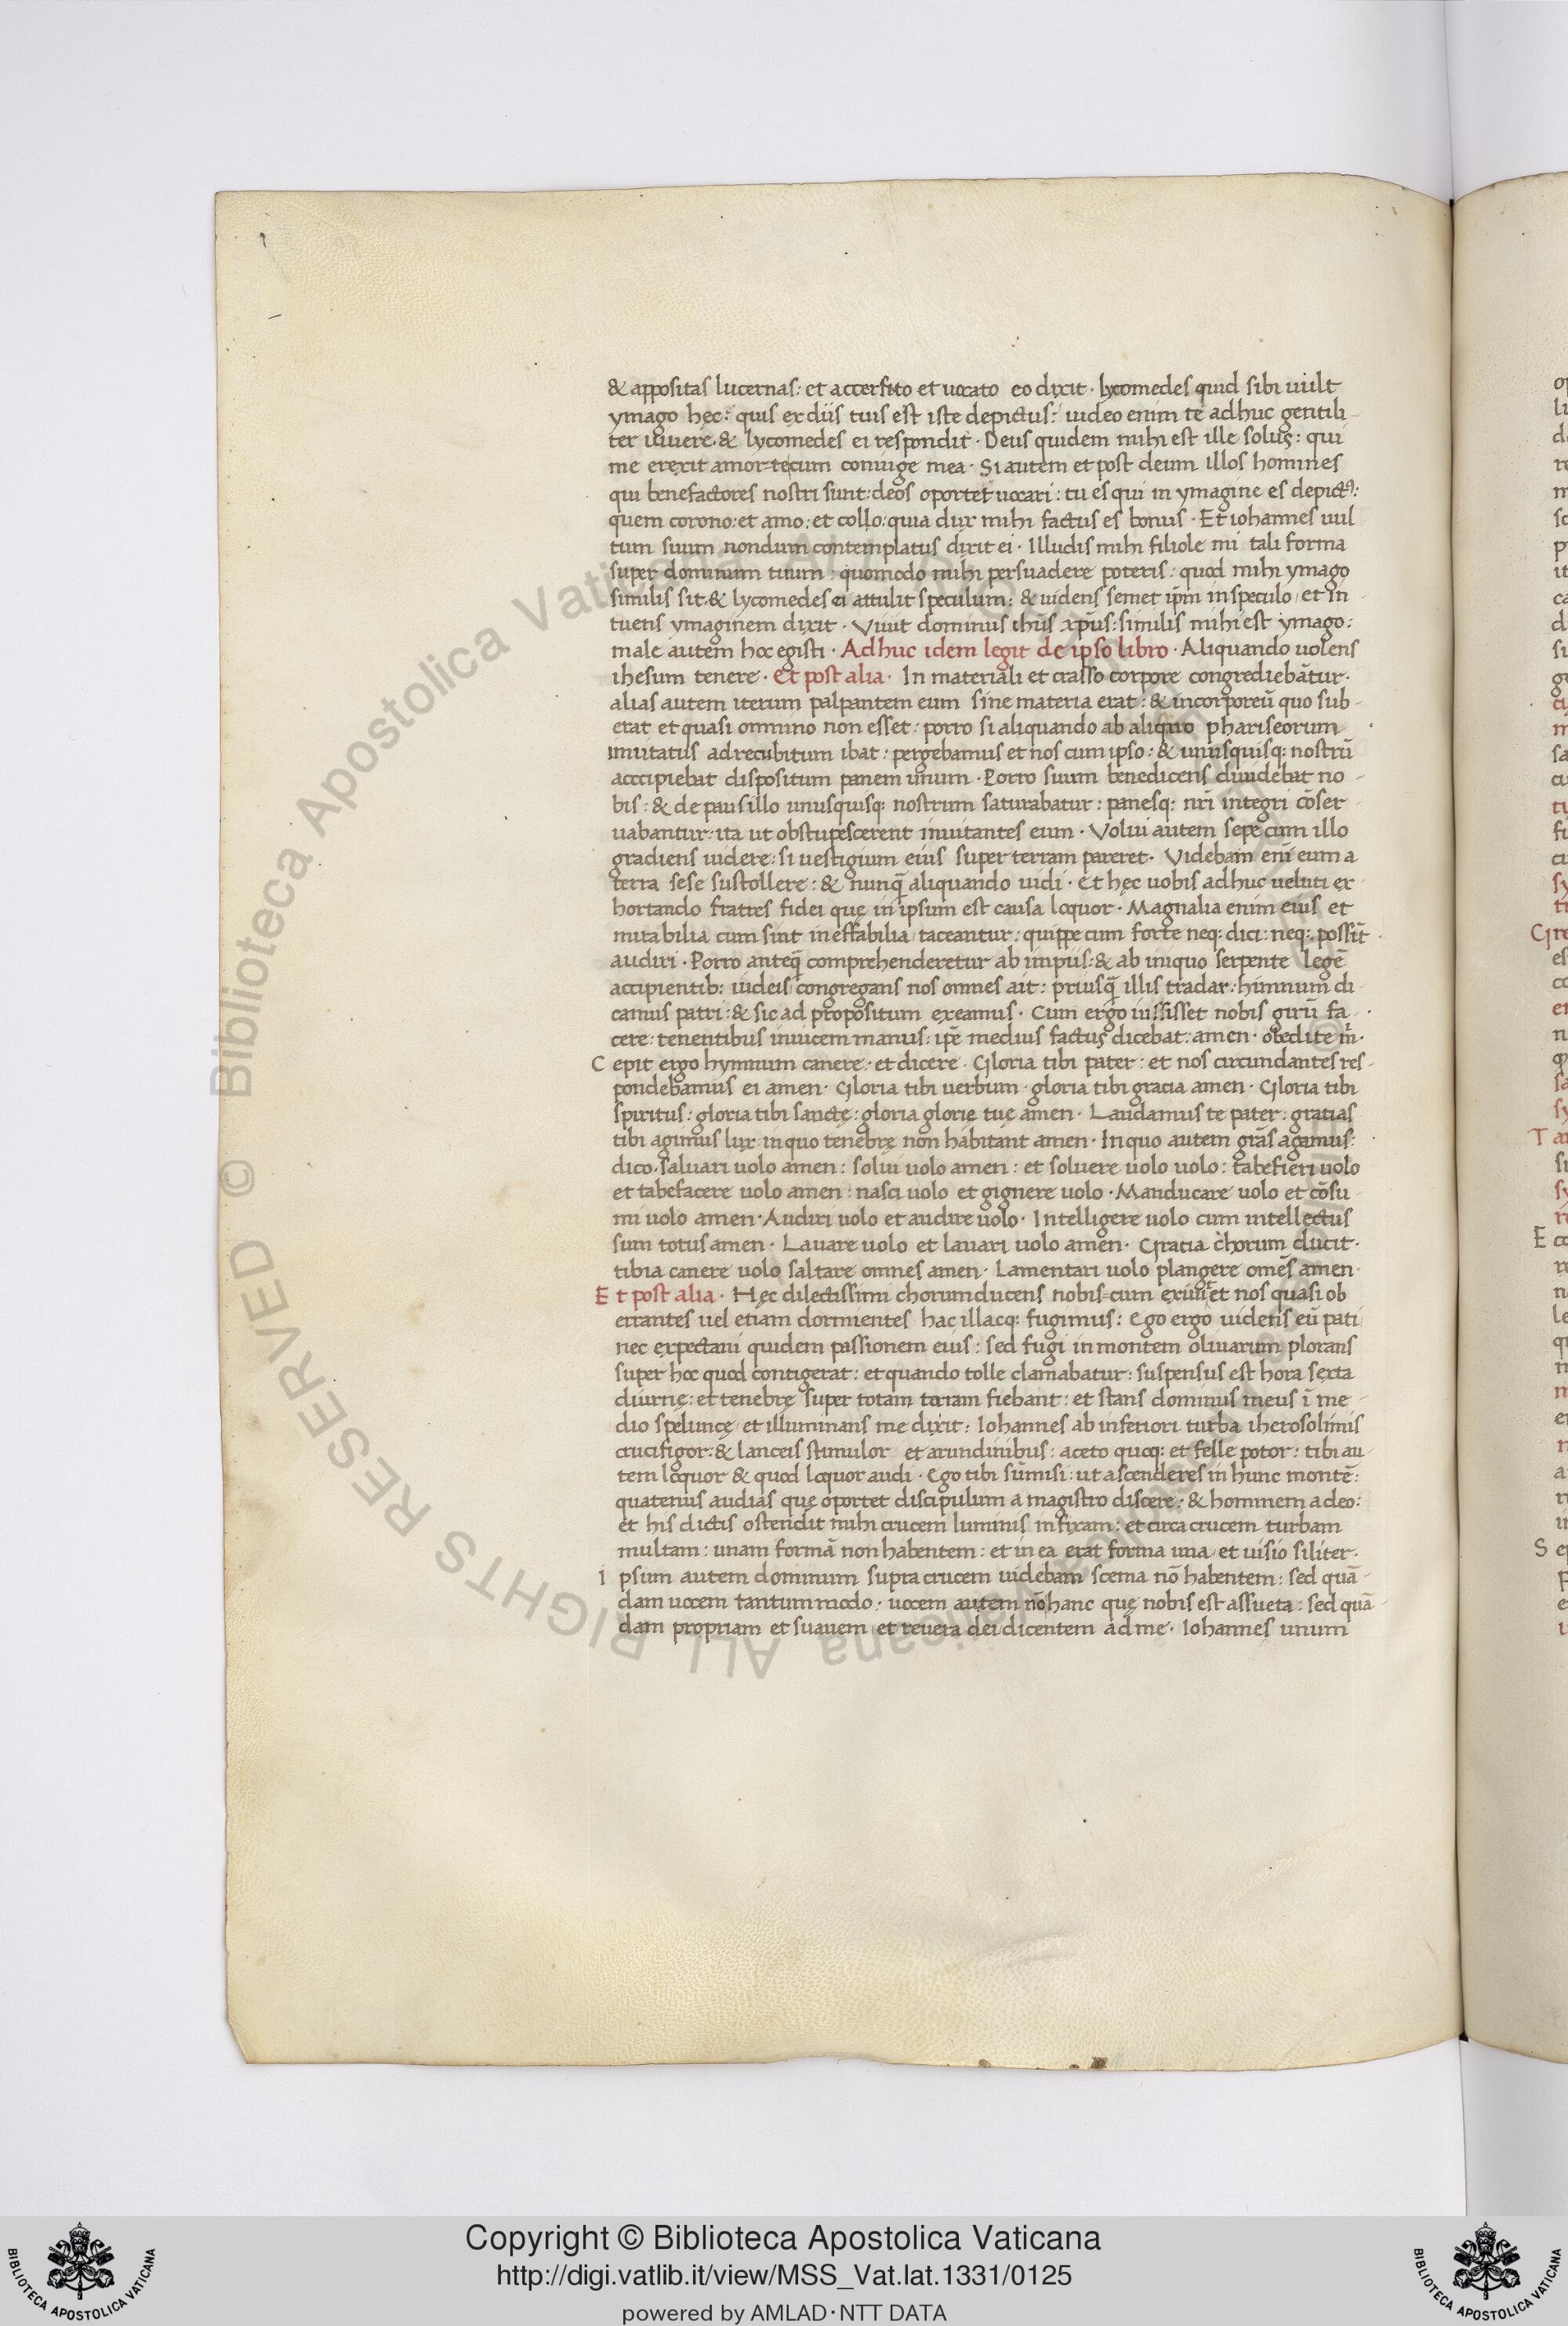 & appositas lucernas: et accersito et uocato eo dixit · lycomedes quid sibi uult
ymago hęc: quis ex diis tuis est iste depictus: uideo enim te adhuc gentili-
ter uiuere & lycomedes ei respondit · Deus quidem mihi est ille solus: qui
me erexit a morte cum coniuge mea · Si autem et post deum illos homines
qui benefactores nostri sunt: deos oportet uocari: tu es qui in ymagine es depictꝰ:
quem corono: et amo: et collo: quia dux mihi factus es bonus · Et iohannes uul
tum suum nondum contemplatus dixit ei · Illudis mihi filiole mi tali forma
super dominum tuum: quomodo mihi persuadere poteris: quod mihi ymago
similis sit & lycomedes ei attulit speculum: & uidens semet ip̄m in speculo et in
tuens ymaginem dixit · Viuit dominus ih̄us xp̄us: similis mihi est ymago:
male autem hoc egisti · Adhuc idem legit de ipso libro · Aliquando uolens
ihesum tenere · Et post alia · In materiali et crasso corpore congrediebātur ·
alias autem iterum palpantem eum sine materia erat: & incorporeū quo sub-
erat et quasi omnino non esset: porro si aliquando ab aliquo phariseorum
inuitatus ad recubitum ibat: pergebamus et nos cum ipso: & unusquisq: nostrū
acccipiebat dispositum panem unum · Porro suum benedicens diuidebat no-
bis: & de pausillo unusquisq: nostrum saturabatur: panesq: nr̄i integri cōser
uabantur: ita ut obstupescerent inuitantes eum · Volui autem sepe cum illo
gradiens uidere: si uestigium eius super terram pareret · Videbam enī eum a
terra sese sustollere: & nunq̄ aliquando uidi · Et hęc uobis adhuc ueluti ex
hortando fratres fidei quę in ipsum est causa loquor · Magnalia enim eius et
mirabilia cum sint ineffabilia taceantur: quippe cum forte neq: dici: neq: possīt
audiri · Porro anteq̄ comprehenderetur ab impiis: & ab iniquo serpente legē
accipientib: iudeis congregans nos omnes ait: priusq̄ illis tradar: himnum di
camus patri: & sic ad propositum exeamus · Cum ergo iussisset nobis girū fa-
cere: tenentibus inuicem manus: ip̄e medius factus dicebat: amen · obedite m̄ ·
Cepit ergo hymnum canere · et dicere · Gloria tibi pater: et nos circundantes res-
pondebamus ei amen · Gloria tibi uerbum · gloria tibi gracia amen · Gloria tibi
spiritus: gloria tibi sanctę: gloria glorię tuę amen · Laudamus te pater: gratias
tibi agimus lux in quo tenebrę non habitant amen · In quo autem grās agamus:
dico · saluari uolo amen: solui uolo amen: et soluere uolo uolo: tabefieri uolo
et tabefacere uolo amen: nasci uolo et gignere uolo · Manducare uolo et cōsu
mi uolo amen · Audiri uolo et audire uolo · Intelligere uolo cum intellectus
sum totus amen · Lauare uolo et lauari uolo amen · Gracia chorum ducit ·
tibia canere uolo saltare omnes amen · Lamentari uolo plangere omēs amen ·
Et post alia · Hęc dilectissimi chorum ducens nobiscum exiuit et nos quasi ob
errantes uel etiam dormientes hac illacq: fugimus: Ego ergo uidens eū pati
nec expectaui quidem passionem eius: sed fugi in montem oliuarum plorans
super hoc quod contigerat: et quando tolle clamabatur: suspensus est hora sexta
diurnę: et tenebrę super totam terram fiebant: et stans dominus meus ī me-
dio speluncę et illuminans me dixit: Iohannes ab inferiori turba iherosolimis
crucifigor: & lanceis stimulor et arundinibus: aceto quoq: et felle potor: tibi au
tem loquor & quod loquor audi · Ego tibi sūmisi: ut ascenderes in hunc montē:
quatenus audias quę oportet discipulum a magistro discere: & hominem a deo:
et his dictis ostendit mihi crucem luminis infixam: et circa crucem turbam
multam: unam formā non habentem: et in ea erat forma una et uisio siliter ·
Ipsum autem dominum supra crucem uidebam scema nō habentem: sed quā-
dam uocem tantummodo · uocem autem nō hanc quę nobis est assueta: sed quā-
dam propriam et suauem et reuera dei dicentem ad me · Iohannes unum
© Biblioteca Apostolica Vaticana ALL RIGHTS RESERVED
Copyright © Biblioteca Apostolica Vaticana
http://digi.vatlib.it/view/MSS_Vat.lat.1331/0125
powered by AMLAD·NTT DATA
BIBLIOTECA APOSTOLICA VATICANA
BIBLIOTECA APOSTOLICA VATICANA